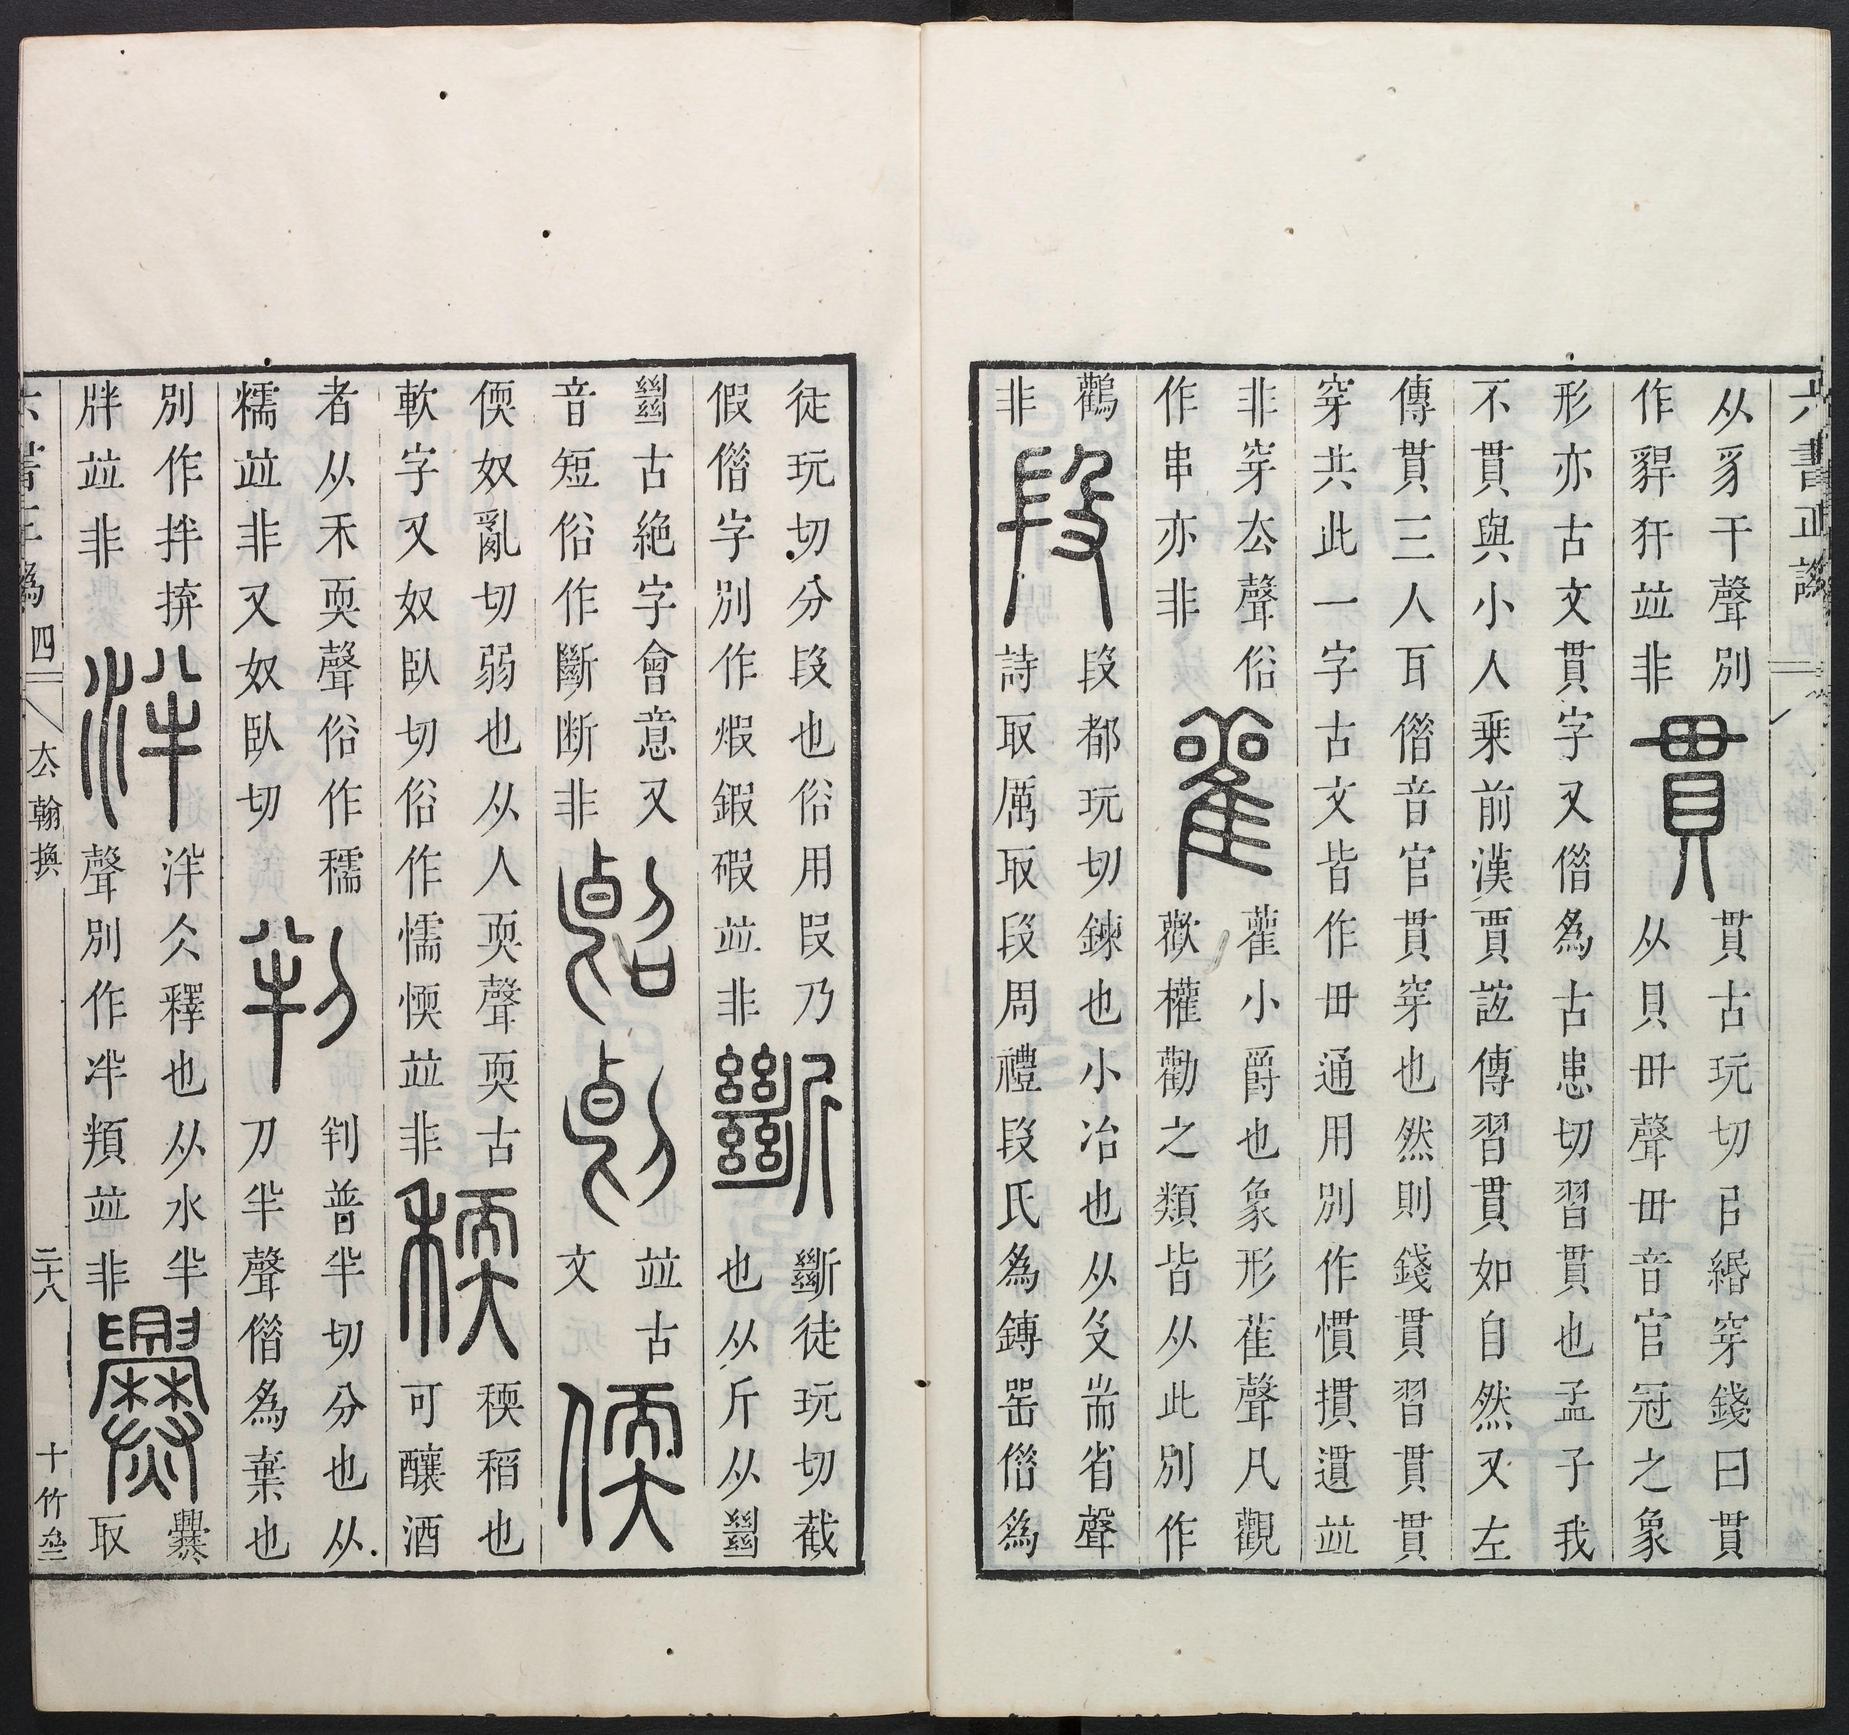 六書正譌
从豸干聲別
作䍐犴並非
貫
貫古玩切㠯緡穿錢曰貫
从貝毌聲毌音官冠之象
形亦古文貫字又僭為古患切習貫也孟子我
不貫與小人乗前漢賈誼傳習貫如自然又左
傳貫三人耳僭音官貫穿也然則錢貫習貫貫
穿共此一字古文皆作毌通用別作慣摜遺並
非穿厺聲俗
作串亦非
雚
雚小爵也象形萑聲凡觀
歡權勸之類皆从此別作
鸛
非
段
段都玩切鍊也小冶也从殳耑省聲
詩取厲取段周禮段氏為鎛器僭為
徒玩切分段也俗用叚乃
假僭字別作煆鍜碬並非
斷
斷徒玩切截
也从斤从𢇍
𢇍古絕字會意又
音短俗作斷断非
並古
文
偄
偄奴亂切弱也从人耎聲耎古
軟字又奴臥切俗作懦愞並非
稬
稬稻也
可釀酒
者从禾耎聲俗作穤
糯並非又奴臥切
判
判普半切分也从
刀半聲僭為棄也
別作拌㨹
牉並非
泮
泮仌釋也从水半
聲別作冸頖並非
爨
爨
取
六書正譌四 厺翰換 二十八 十竹齋